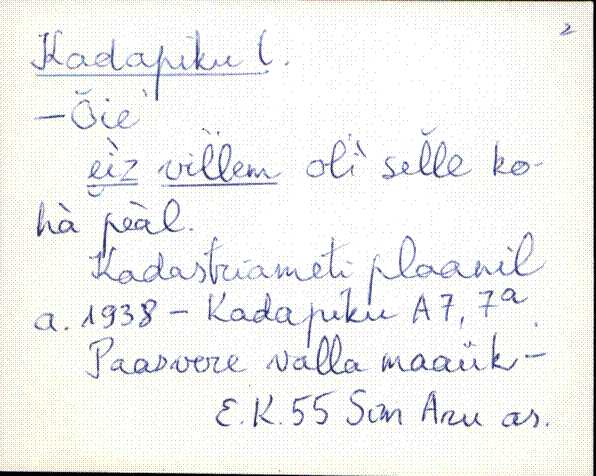 2
Kadapiku l.
– Õie
eìz villem oli selle ko-
hà peàl.
Kadastriameti plaanil
a. 1938 – Kadapiku A7, 7a.
Paasvere valla maaük –
E.K. 55 Sim Aru as.